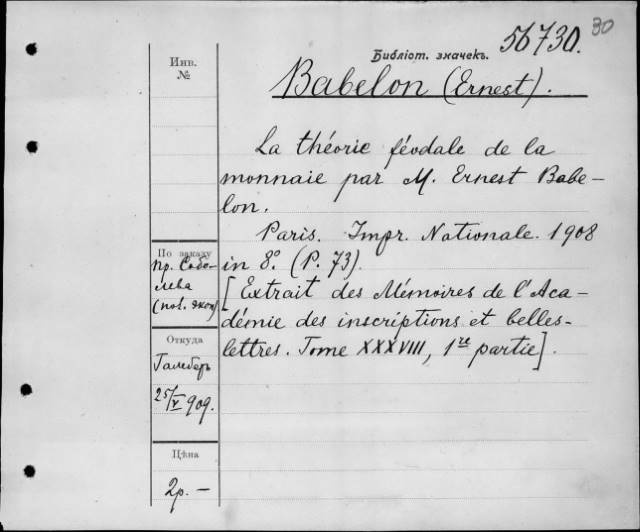 30
56730.
Библіот. значекъ.
Инв.
№
Babelon (Ernest).
La théorie féodale de la
monnaie par M. Ernest Babe-
lon.
Paris. Impr. Nationale. 1908
in 8º. (P. 73).
[Extrait des Mémoires de l'Aca-
démie des inscriptions et belles-
lettres. Tome XXXVIII, 1re partie].
По заказу
пр. Собо-
лева
Откуда
25/V 909.
Цѣна
2р. —